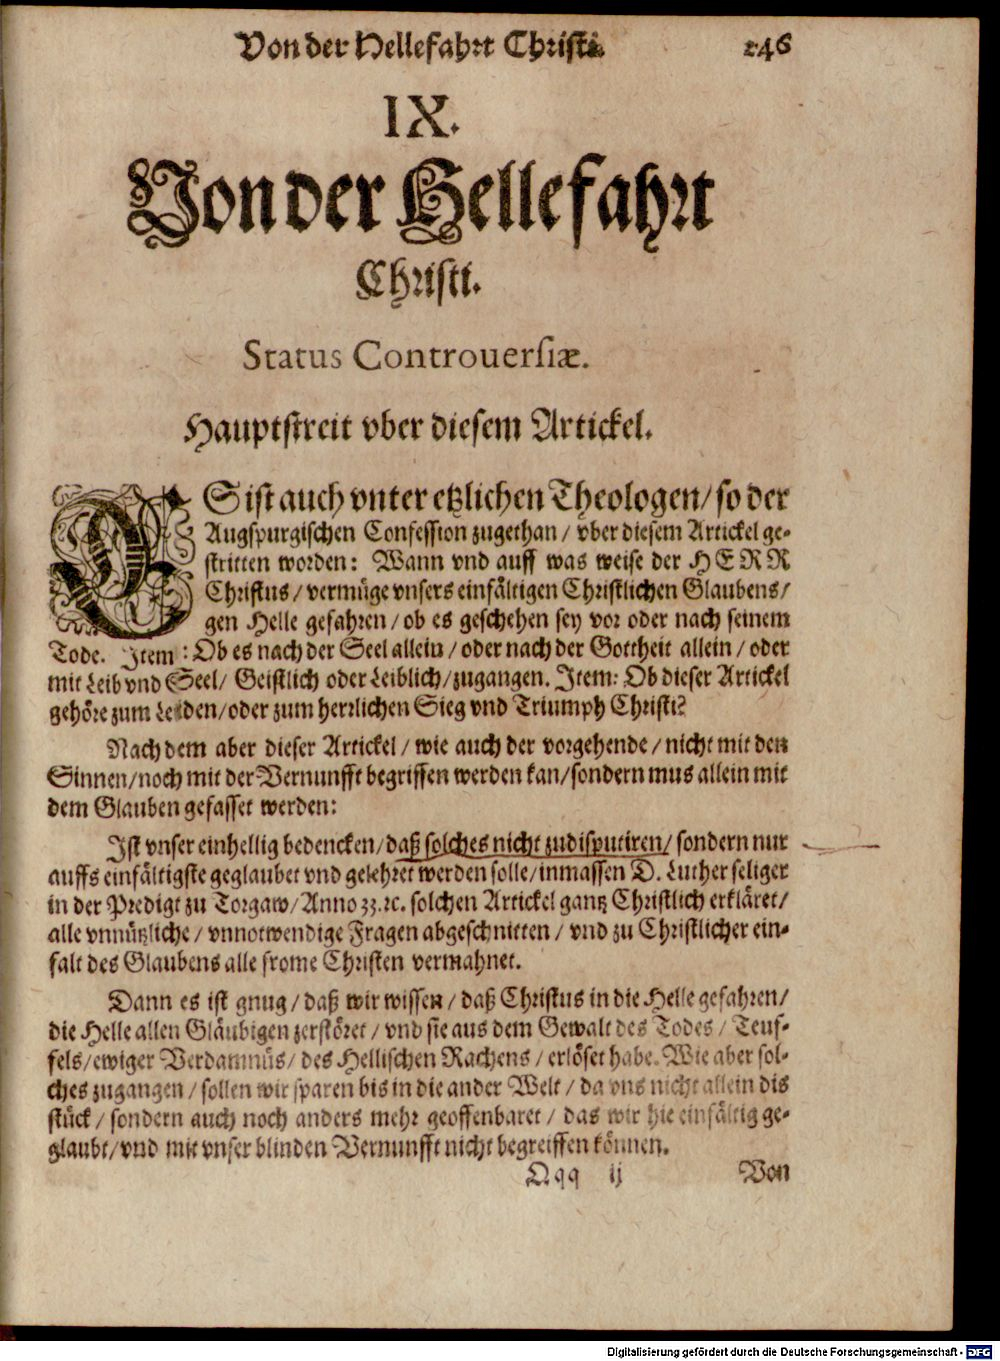 Von der Hellefahrt Christi. 246
IX.
Von der Hellefahrt
Christi.
Status Controuersiæ.
Hauptstreit vber diesem Artickel.
ES ist auch vnter etzlichen Theologen/ so der
Augspurgischen Confession zugethan / vber diesem Artickel ge-
stritten worden: Wann vnd auff was weise der HERR
Christus / vermüge vnsers einfältigen Christlichen Glaubens/
gen Helle gefahren / ob es geschehen sey vor oder nach seinem
Tode. Item: Ob es nach der Seel allein / oder nach der Gottheit allein / oder
mit Leib vnd Seel/ Geistlich oder Leiblich/ zugangen. Item: Ob dieser Artickel
gehöre zum Leiden/ oder zum herrlichen Sieg vnd Triumph Christi?
Nach dem aber dieser Artickel / wie auch der vorgehende / nicht mit den
Sinnen/ noch mit der Vernunfft begriffen werden kan/ sondern mus allein mit
dem Glauben gefasset werden:
Ist vnser einhellig bedencken/ daß solches nicht zudisputiren/ sondern nur
auffs einfältigste geglaubet vnd gelehret werden solle/ inmassen D. Luther seliger
in der Predigt zu Torgaw/ Anno 33. ꝛc. solchen Artickel gantz Christlich erkläret/
alle vnnützliche / vnnotwendige Fragen abgeschnitten / vnd zu Christlicher ein-
falt des Glaubens alle frome Christen vermahnet.
Dann es ist gnug / daß wir wissen / daß Christus in die Helle gefahren/
die Helle allen Gläubigen zerstöret / vnd sie aus dem Gewalt des Todes / Teuf-
fels/ ewiger Verdamnüs/ des Hellischen Rachens / erlöset habe. Wie aber sol-
ches zugangen / sollen wir sparen bis in die ander Welt / da vns nicht allein dis
stück / sondern auch noch anders mehr geoffenbaret / das wir hie einfältig ge-
glaubt/ vnd mit vnser blinden Vernunfft nicht begreiffen können.
Qqq ij Von
Digitalisierung gefördert durch die Deutsche Forschungsgemeinschaft - DFG